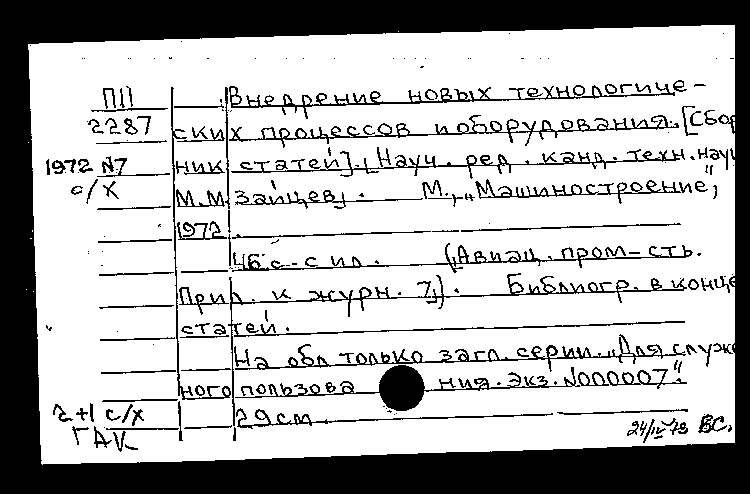 П11 Внедрение новых технологиче-
2287 ских процессов и оборудования. [Сбор
1972 №7 ник статей]. [Науч. ред. канд. техн. наук
с/х М.М. Зайцев]. М., „Машиностроение",
1972.
46 с. с ил. (Авиац. пром-сть.
Прил. к журн. 7). Библиогр. в конце
статей.
На обл. только загл. серии. „Для служеб
ного пользования. Экз. №000007".
2+1 с/х 29 см.
ГАК 24/IV 73 ВС.